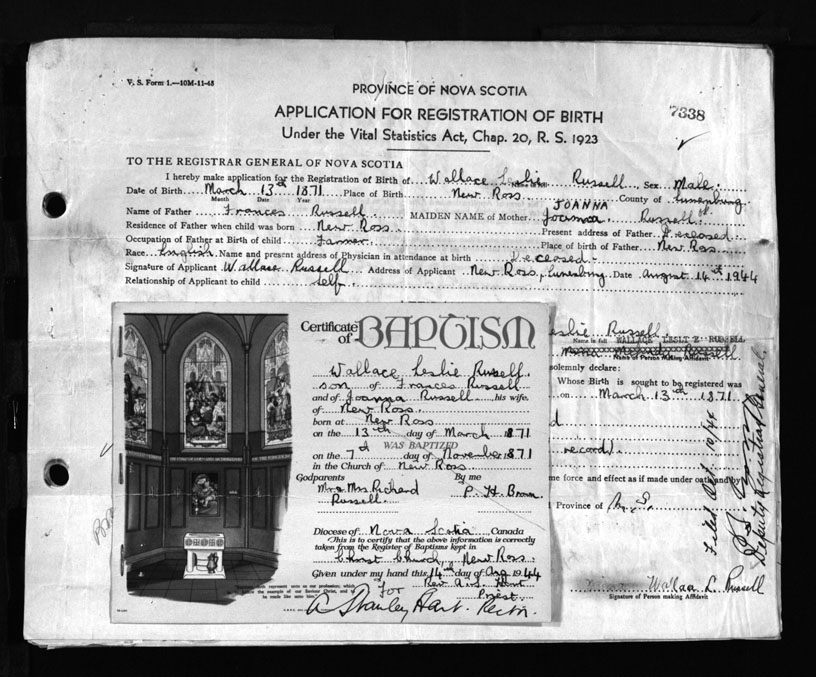 V. S. Form 1.—10M-11-43
PROVINCE OF NOVA SCOTIA
APPLICATION FOR REGISTRATION OF BIRTH
7338
Under the Vital Statistics Act, Chap. 20, R. S. 1923
TO THE REGISTRAR GENERAL OF NOVA SCOTIA
I hereby make application for the Registration of Birth of Wallace Leslie Russell Sex Male
Date of Birth March 13th 1871 Place of Birth New Ross County of Lunenburg
Month Date Year
JOANNA
Name of Father Frances Russell MAIDEN NAME of Mother Joanna Russell
Residence of Father when child was born New Ross Present address of Father Deceased
Occupation of Father at Birth of child Farmer Place of birth of Father New Ross
Race English Name and present address of Physician in attendance at birth Deceased
Signature of Applicant Wallace Russell Address of Applicant New Ross, Lunenburg Date August 14th 1944
Relationship of Applicant to child self
eslie Russell
Name in full WALLACE LESLIE RUSSELL
Russell
Name of Person making Affidavit
solemnly declare:
Whose Birth is sought to be registered was
on March 13th 1871
d
record)
me force and effect as if made under oath and by
Province of N. S.
Filed Oct. 10/44
Deputy Registrar General
Wallace L. Russell
Signature of Person making Affidavit
Certificate of BAPTISM
Wallace Leslie Russell
son of Frances Russell
and of Joanna Russell his wife.
of New Ross
born at New Ross
on the 13th day of March 1871
WAS BAPTIZED
on the 7th day of November 1871
in the Church of New Ross
Godparents By me
Mr & Mrs Richard P. H. Brown
Russell
Diocese of Nova Scotia, Canada
This is to certify that the above information is correctly
taken from the Register of Baptisms kept in
Christ Church, New Ross.
Given under my hand this 14 day of Aug 1944
For Rev A. S. Hart
Priest
A Stanley Hart. Rector.
represent unto us our profession; which
the example of our Saviour Christ, and
be made like unto him